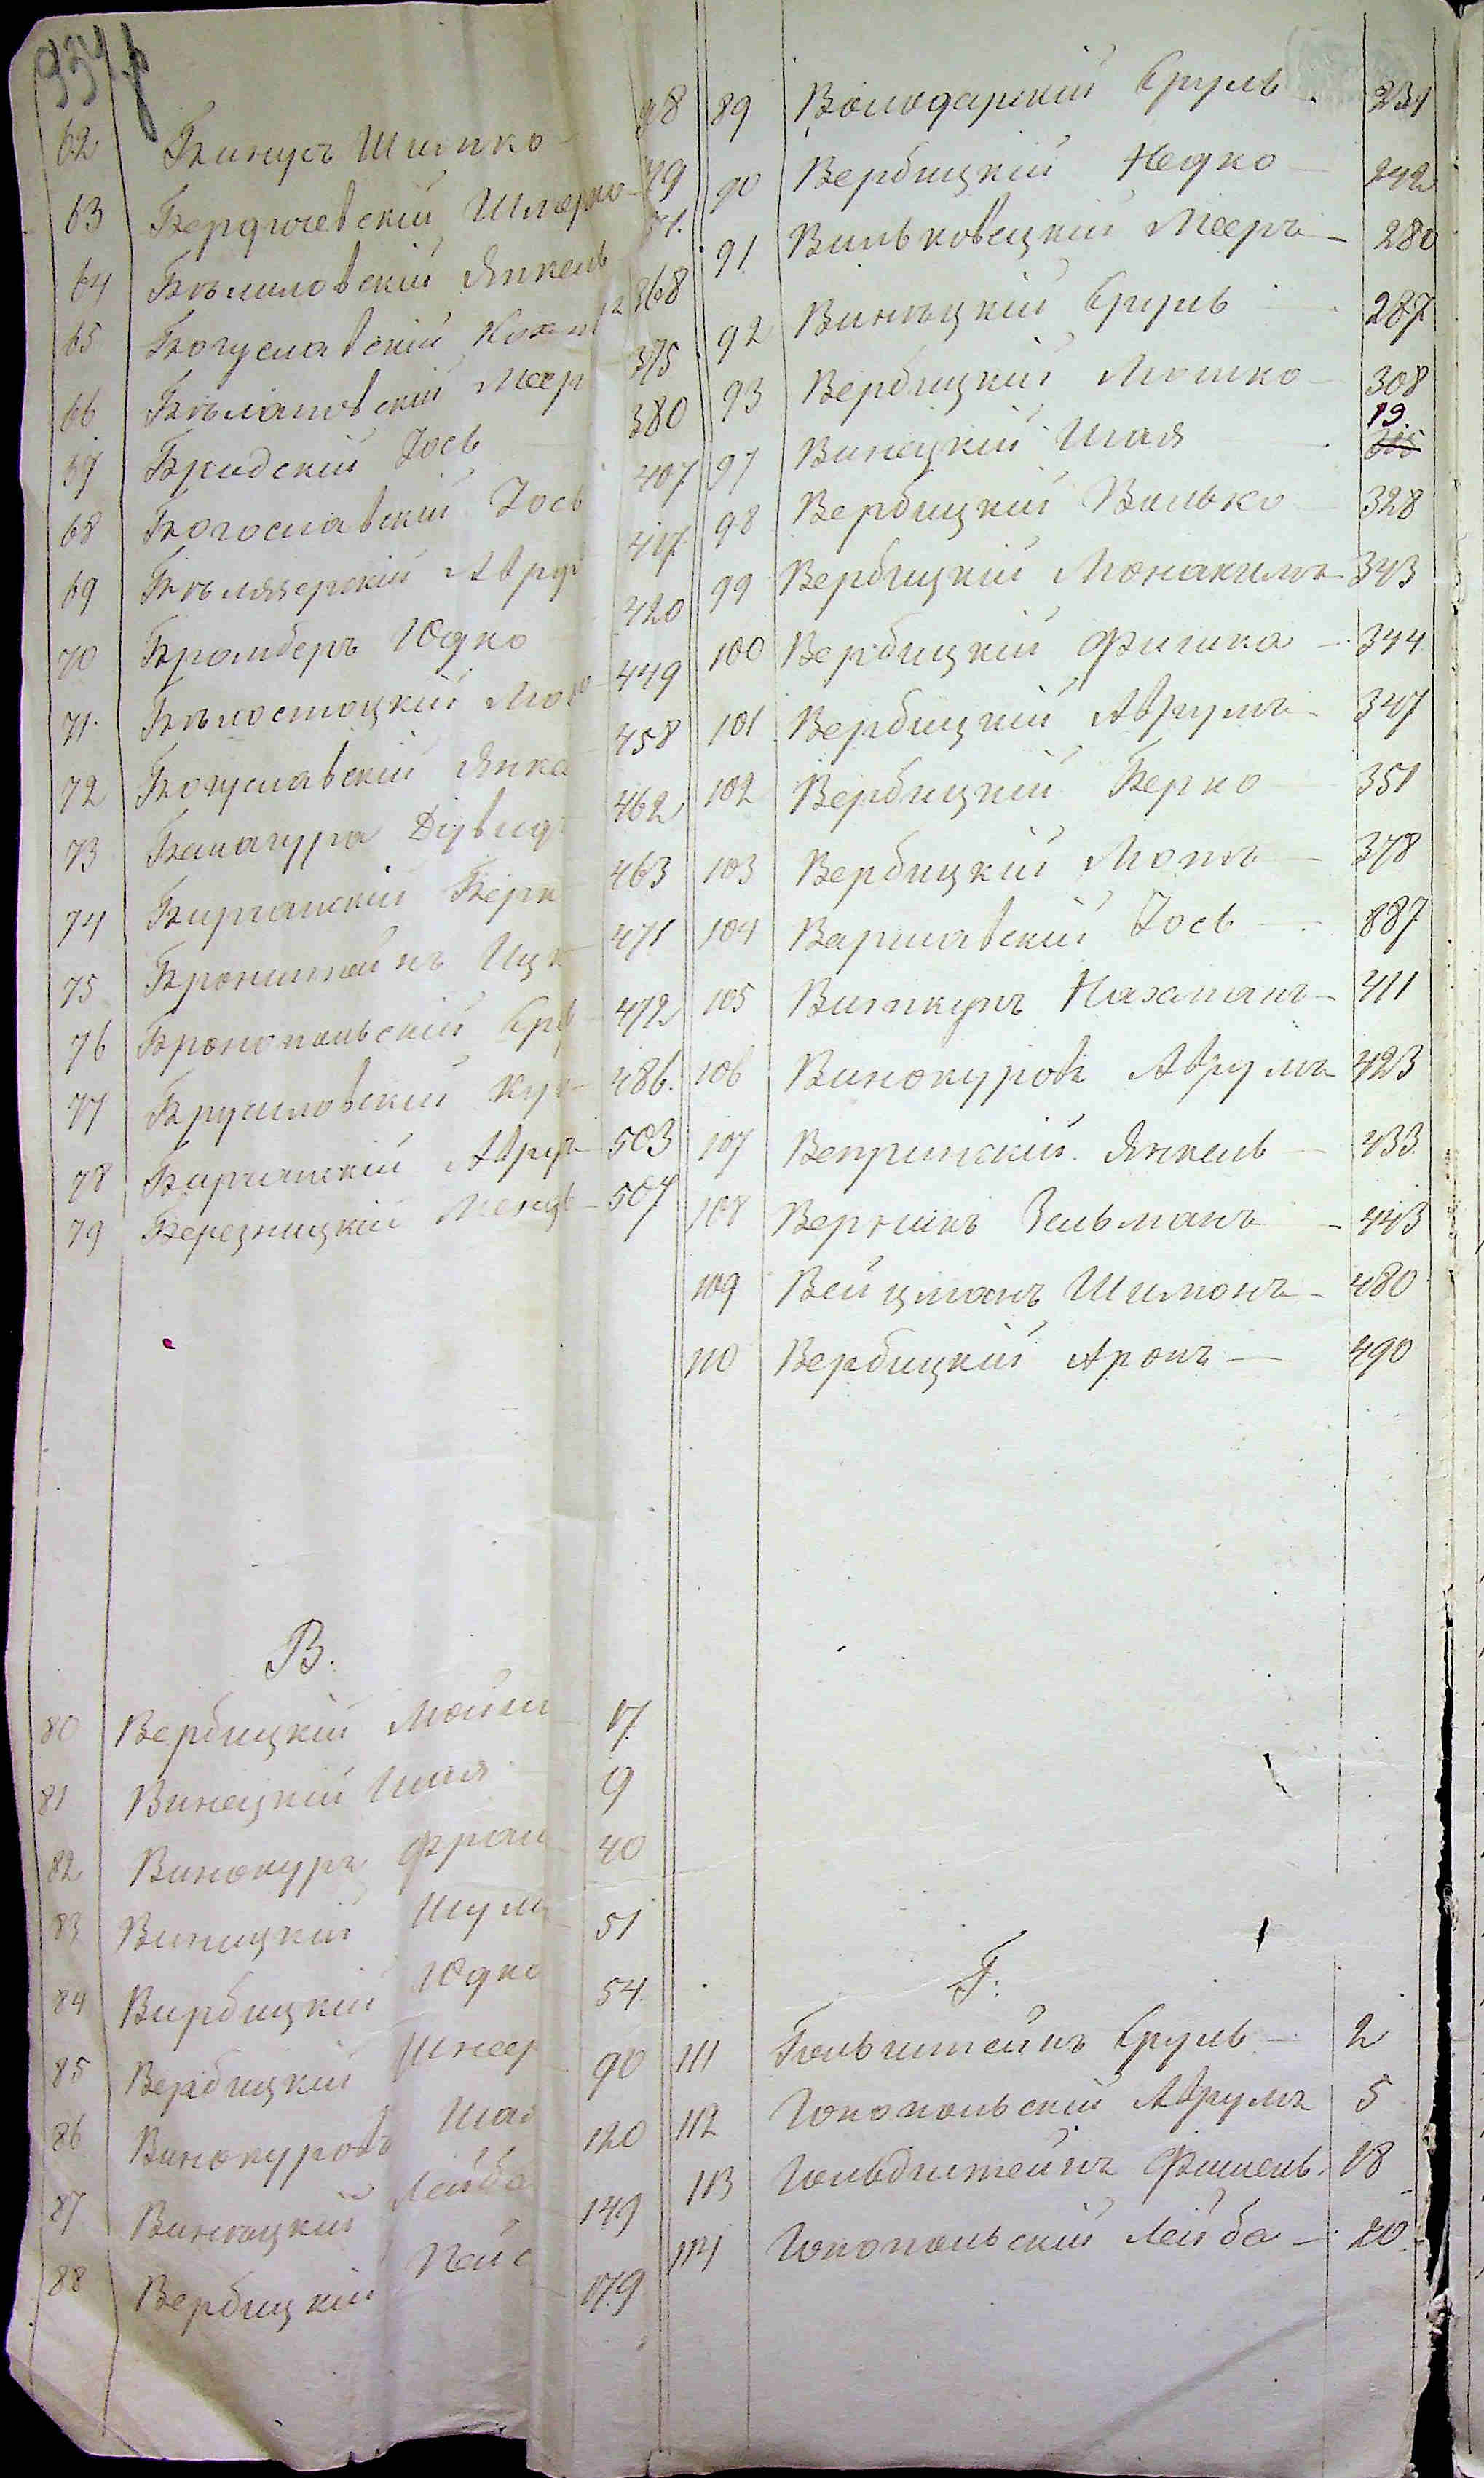 62 Бинусъ Шимко 48
63 Бердичевскій Шмерко 49
64 Бѣлиловскій Янкель
65 Богуславскій 368
66 Бѣлиловскій Меер 375
67 Бродскій Іось 380
68 Богославскій Іось 407
69 Бѣлязерскій Авру 417
70 Бромберъ Юдко 420
71. Бѣлостоцкій Мо 449
72 Богуславскій Янке 458
73 Балагура Дувид 462
74 Бирганскій Берк 463
75 Бронштейнъ Ицк 471
76 Бронопольскій Сру 472
77 Брусиловскій 486.
78 Бирганскій Авру 503
79 Березницкій Менд 507
В.
80 Вербицкій Мойш 17
81 Винецкій Шая 9
82 Винокуръ Фроим 40
83 Виницкій Шулм 51
84 Вирбицкій Юдко 54.
85 Вербицкій Шнеер 90
86 Винокуровъ Шая 120
87 Виницкій Лейба 149
88 Вербицкій Пейс 179
89 Володарскій Сруль 231
90 Вербицкій Недко 242
91 Вильковецкій Мееръ 280
92 Винѣцкій Сруль 287
93 Вербицкій Мошко 308
97 Винецкій Шая 19.
98 Вербицкій Волько 328
99 Вербицкій Монахимъ 343
100 Вербицкій Фишка 344
101 Вербицкій Аврумъ 347
102 Вербицкій Берко 351
103 Вербицкій 378
104 Варшавскій Іось 887
105 Виткупъ Нахманъ 411
106 Винокуровъ Аврумъ 423
107 Вепринскій Янкель 433
108 Верникъ Зельманъ 443
109 Вейцманъ Шимонъ 480
110 Вербицкій Аронъ 490
Г.
111 Гольштейнъ Сруль 2
112 Гонопольскій Аврумъ 5
113 Гольдштейнъ Фишель 18
114 Гонопольскій Лейба 20.